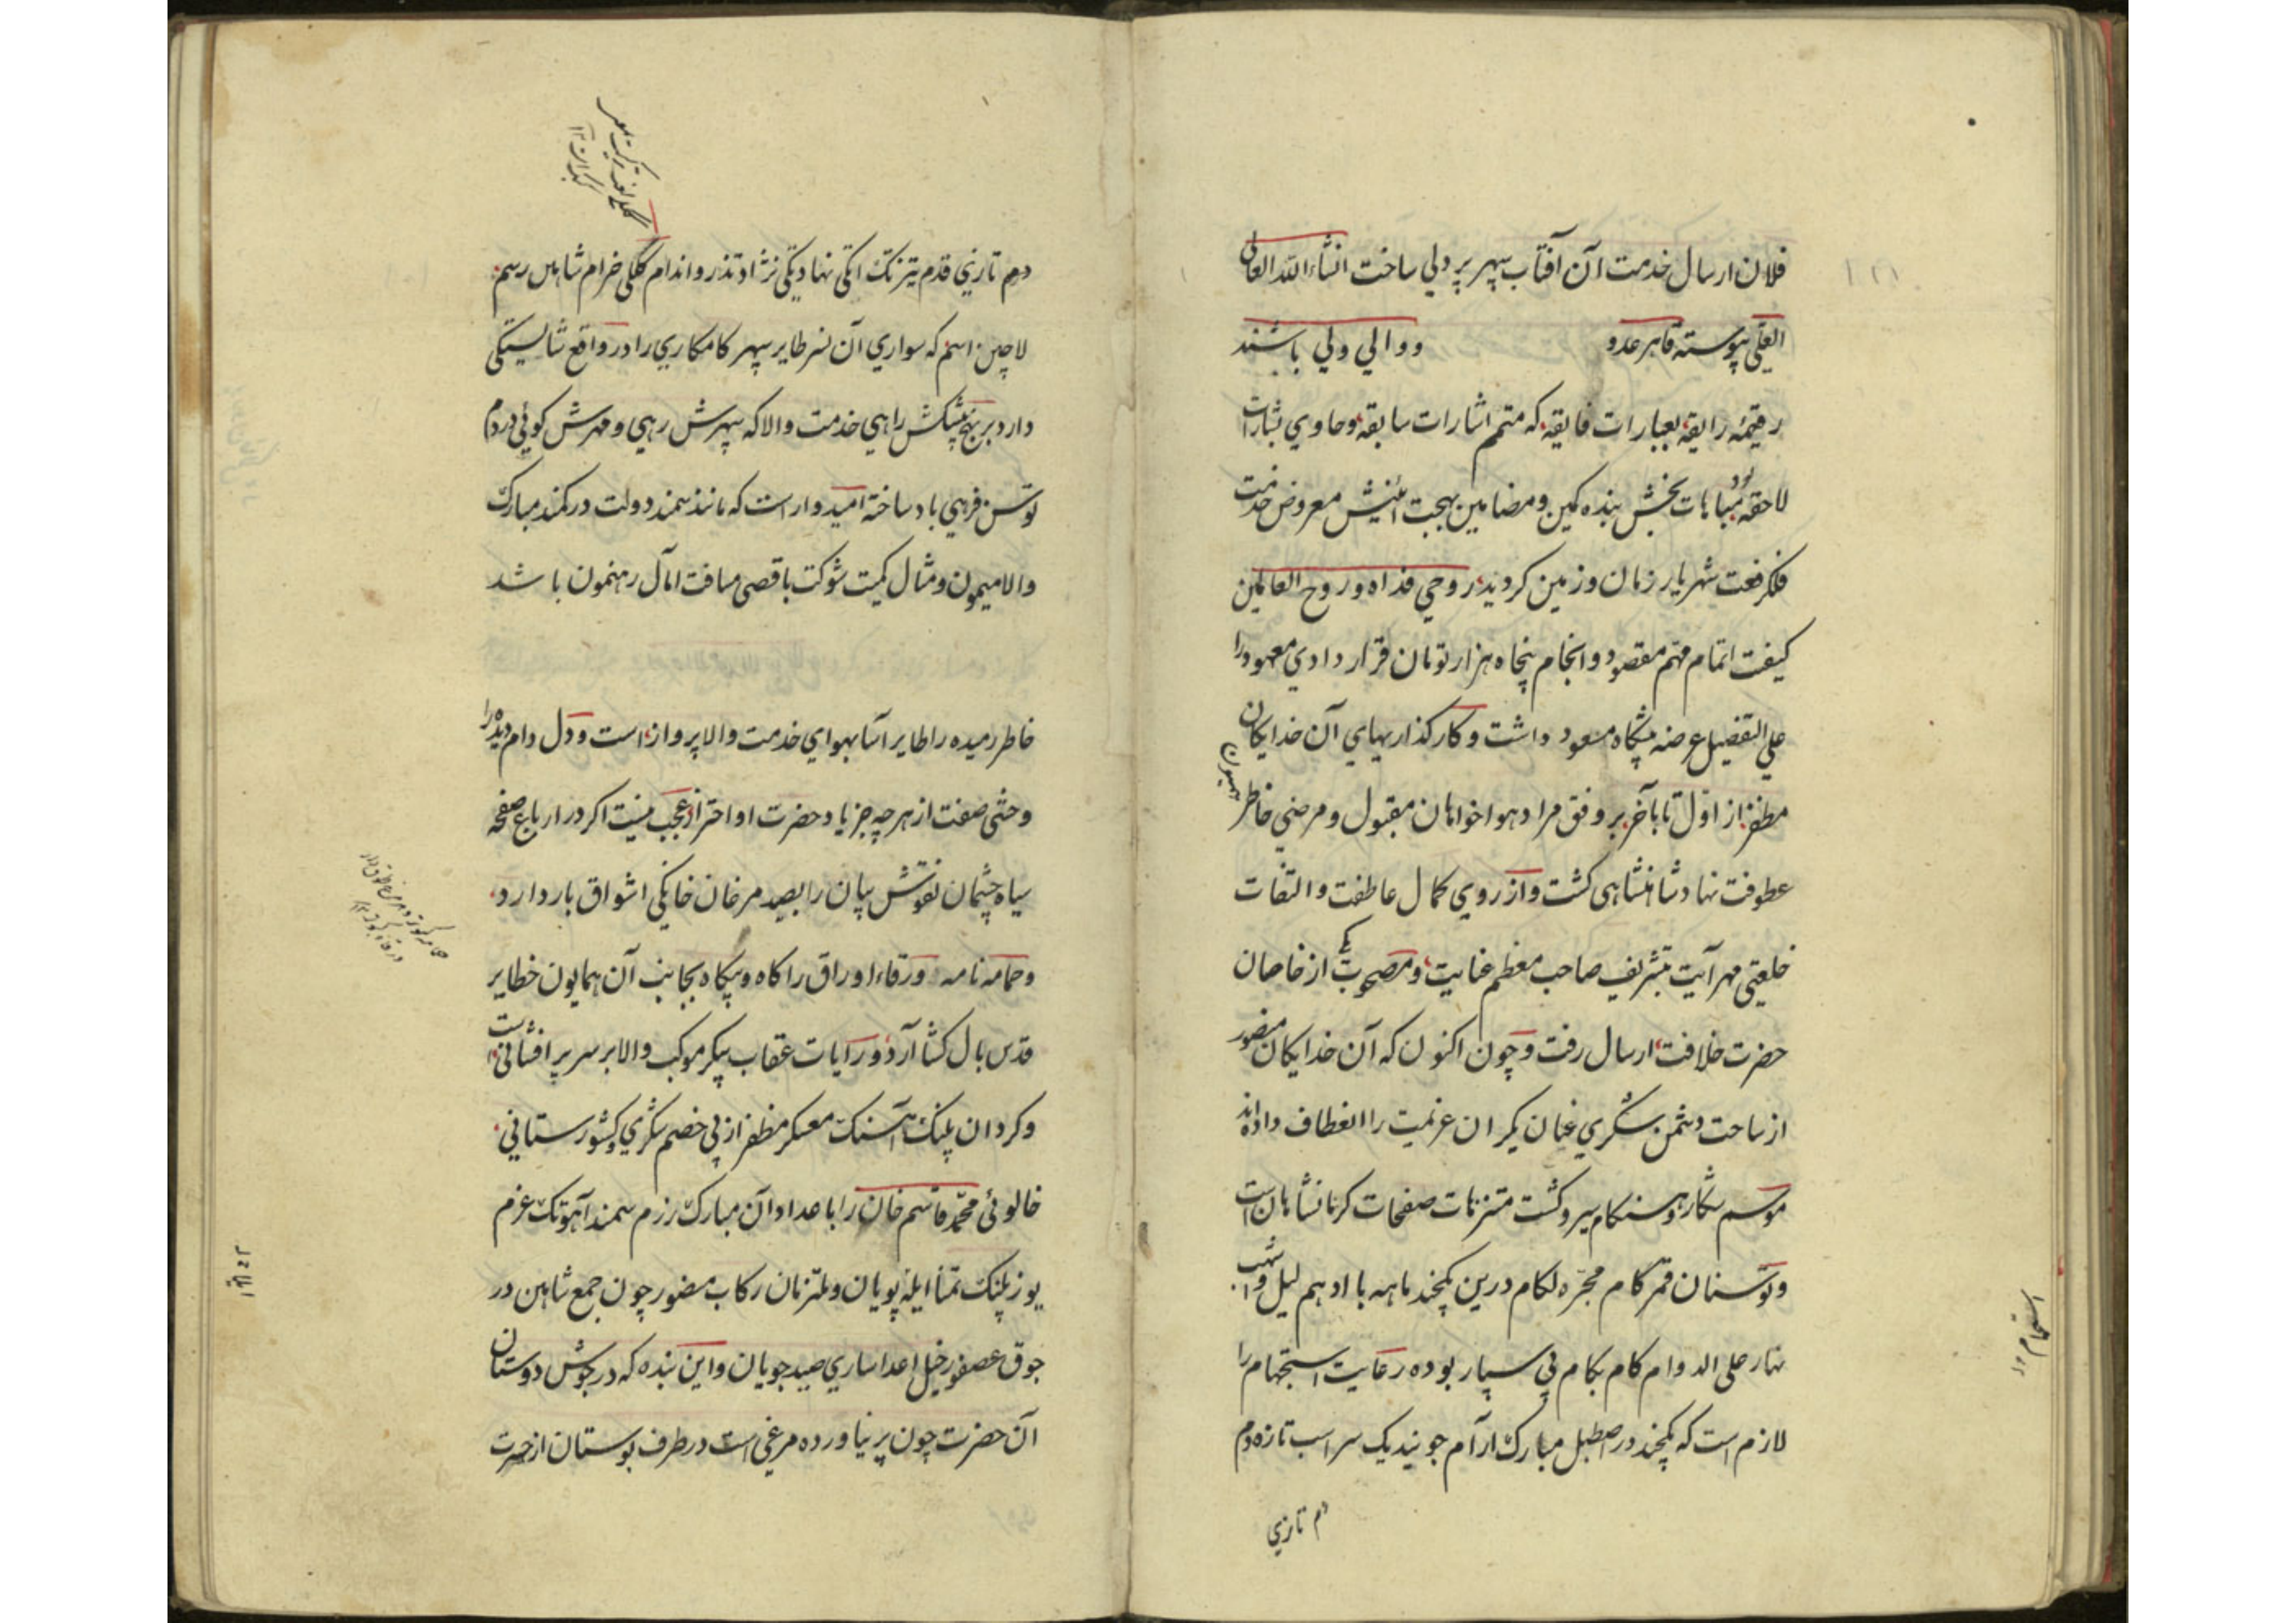 فلان ارسال خدمت آن آفتاب سپهر پر دلي ساخت انشاء الله العالی
العلّی پیوسته قاهر عدو و والي ولي باشند
رقیمهٔ رایقه بعبارات فایقه که متمم اشارات سابقه و حاوي بشارات
لاحقه بود مباهات بخش بنده کمین و مضامین بهجت معروض خدمت
فلک رفعت شهریار زمان و زمین کردید روحي فداه و روح العالمین
کیفیت اتمام مهتم مقصود و انجام پنجاه هزار تومان قرار دادي معهود را
علي التفضیل عرضه پیشکاه مسعود داشت و کارکذاریهاي آن خدایکان
مظفر از اوّل تا بآخر بر وفق مراد هواخواهان مقبول و مرضي خاطر
عطوفت نهاد شاهنشاهی کشت و از روي کمال عاطفت و التفات
خلعتی مهر آیت بتشریف صاحب معظم عنایت و مصحوب یکی از خاصان
حضرت خلافت ارسال رفت و چون اکنون که آن خدایکان منصور
از ساحت دشمن شکري عنان یکران عزیمت را انعطاف داده‌اند
موسم شکار و هنکام سیر و کشت متنزهات صفحات کرمانشاهان است
و توسنان قمر کام مجرّه لکام درین یکچند ماهه با ادهم لیل و اشهب
نهار علی الدوام کام بکام پی سپار بوده رعایت استجمام را
لازم است که یکچند در اصطبل مبارک آرام جویند یک سر اسب تازه دم
دم تازي
استجمام
دم تازي قدم تیزتک نهاد نژاد تذرو اندام کلکی خرام شاهین رسم
لاچین اسم که سواري آن نسر طایر سپهر کامکاري را در واقع شایستکی
دارد برنج پیشکش راهي خدمت والا که سپهرش رهي و مهرش کوئي در دم
توسن فرهي باد ساخته امیدوار است که مانند سمند دولت در کمند مبارک
والا میمون و مثال کمیت شوکت باقصی مسافت امآل رهنمون باشد
خاطر رمیده را طایر آسا بهواي خدمت والا پرواز است و دل دام دیده را
وحشی صفت از هر چه جز یاد حضرت او احتراز عجب نیست اکر در ارباع صفحه
سیاه چشمان نقوش بیان را بصید مرغان خانکی اشواق بار دارد
و حمامه نامه و ورقاء اوراق را کاه و بیکاه بجانب آن همایون خطایر
قدس بال کشا آرد و رایات عقاب پیکر موکب والا بر سر پر افشانی است
و کردان پلنک آهنک معسکر مظفر از پی خصم شکري و کشورستاني
خالوئي محمّد قاسم خان را با عداد آن مبارک رزم سمند آهوتک عزم
یوز پلنک تمنّا ایله پویان و ملتزمان رکاب منصور چون جمع شاهین در
جوق عصفور خیل اعدا ساري صید جویان و این بنده که در جوش دوستان
آن حضرت چون پر نیاورده مرغی است در طرف بوستان از حسرت